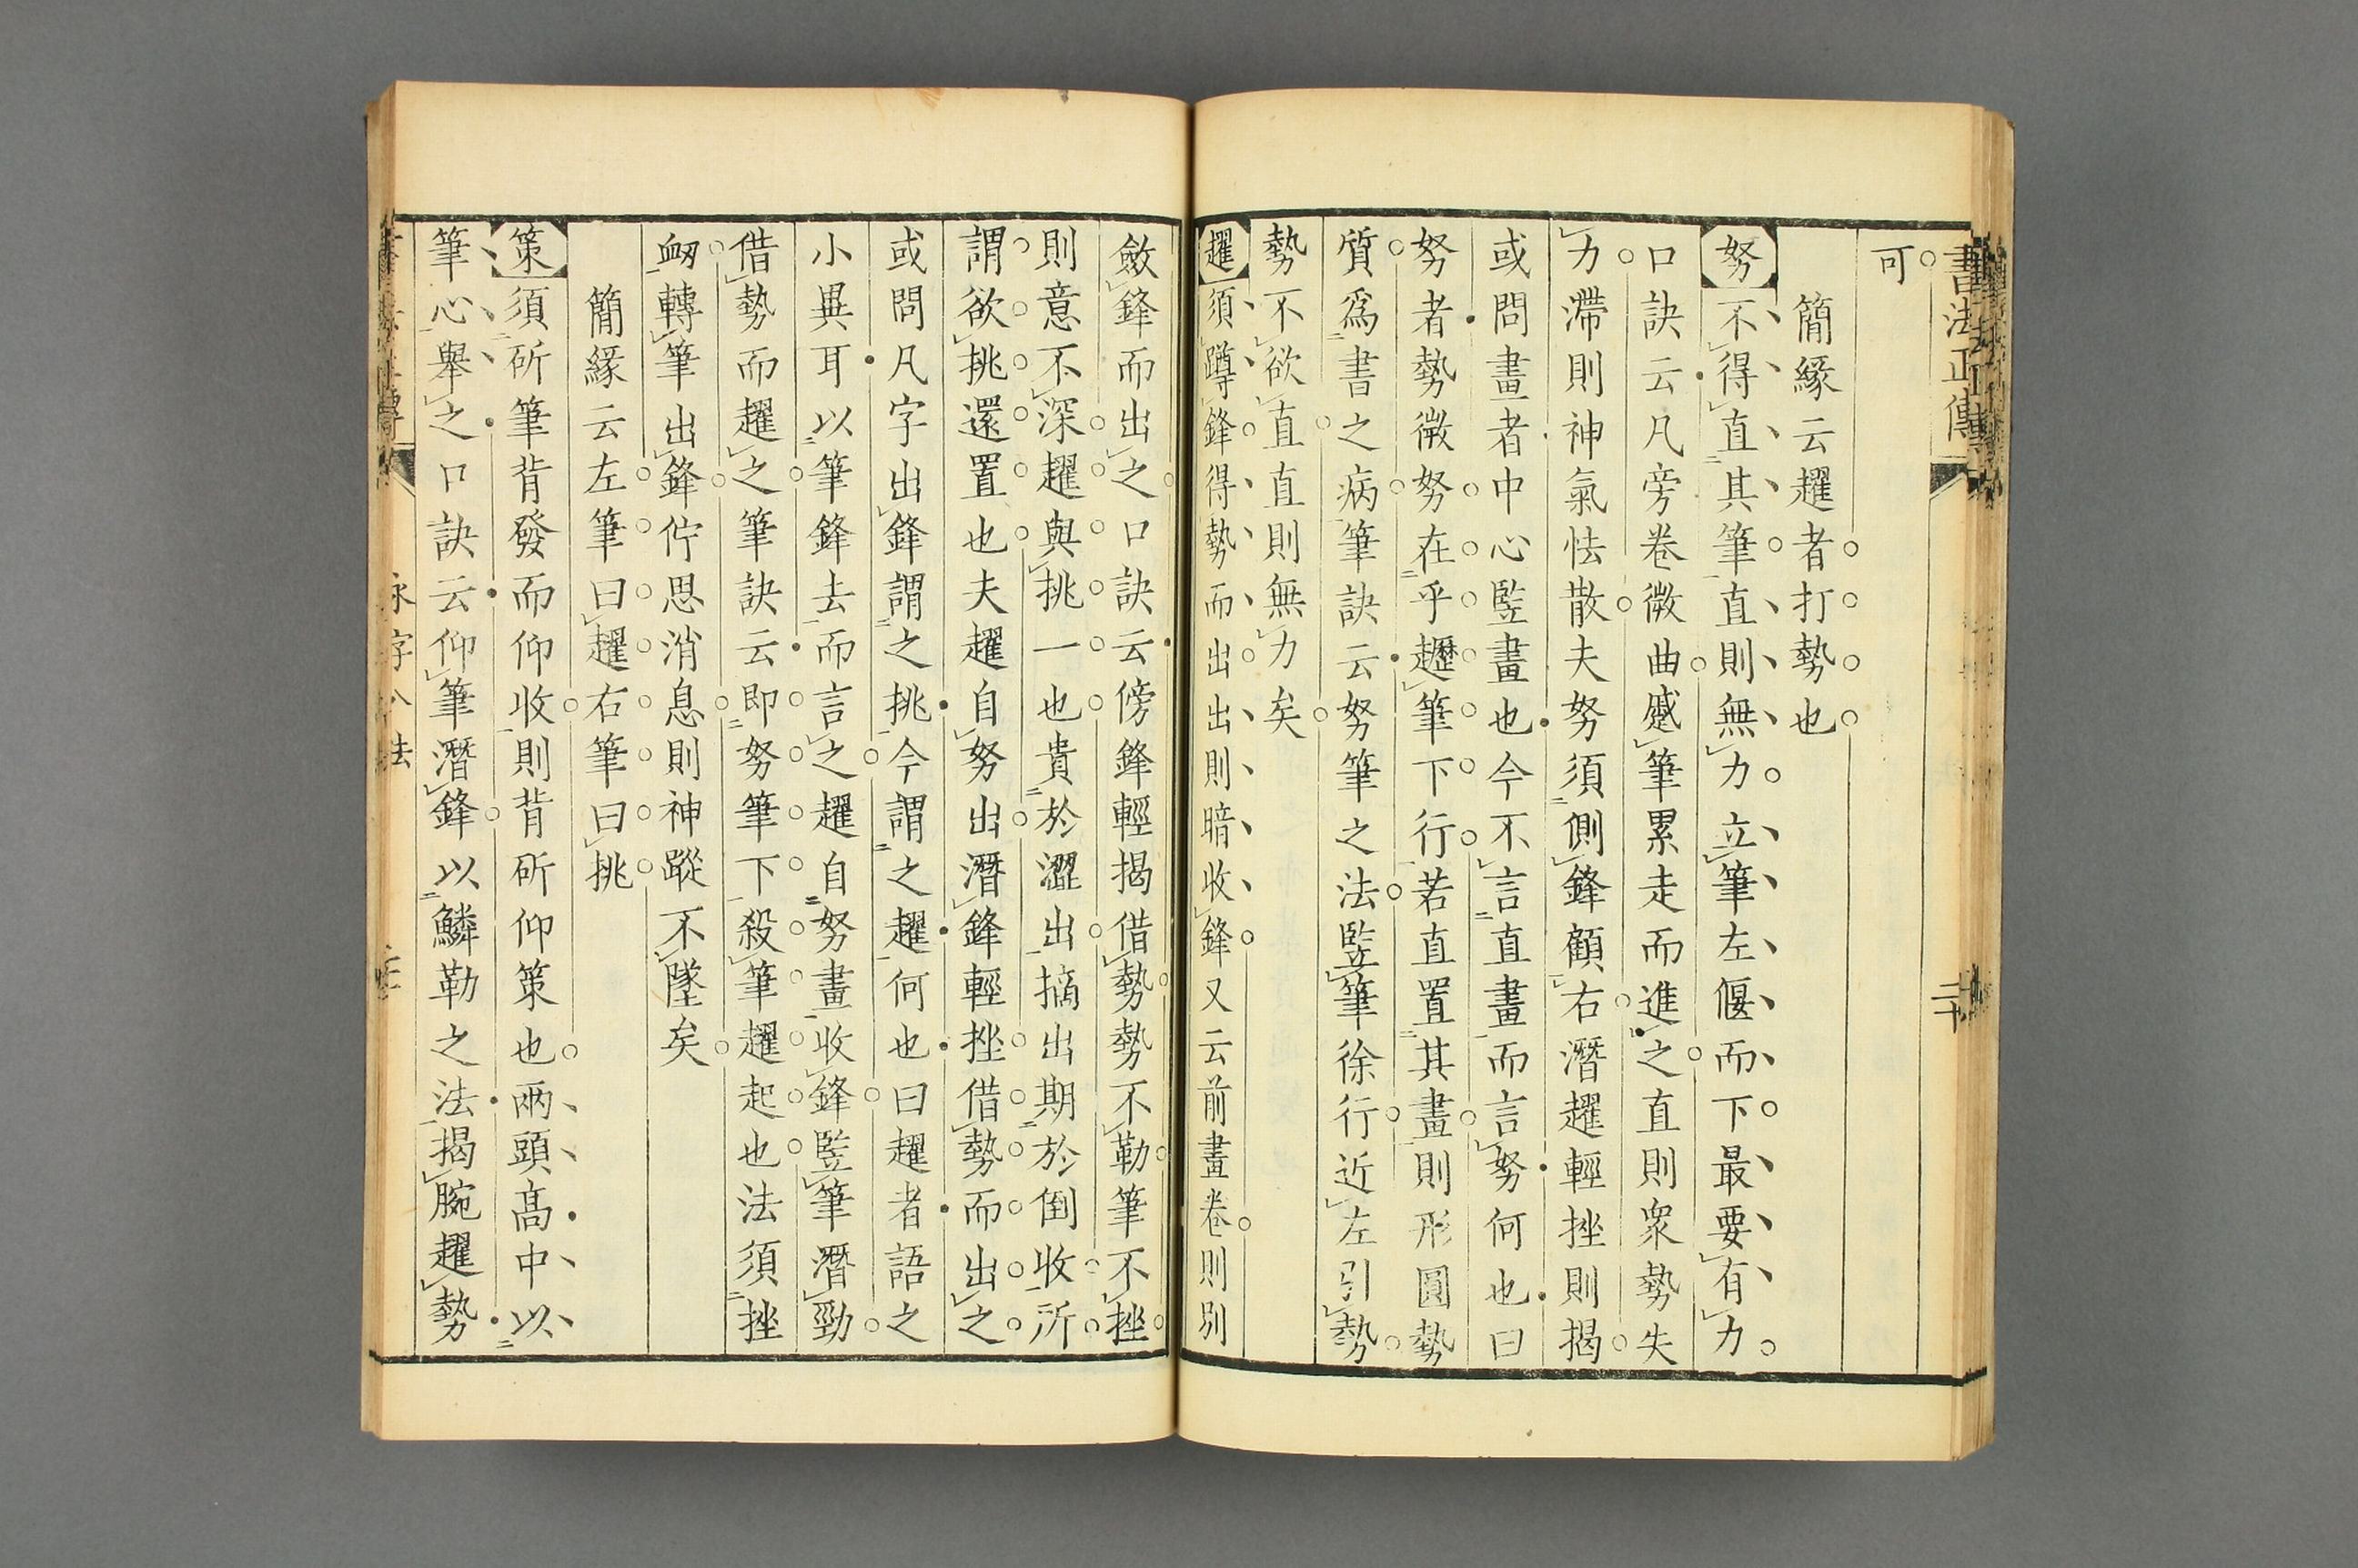 書法正傳
二十
可
簡緣云趯者打勢也
努不得直其筆直則無力立筆左偃而下最要有力
口訣云凡旁卷微曲蹙筆累走而進之直則衆勢失
力滯則神氣怯散夫努須側鋒顧右潛趯輕挫則揭
或問畫者中心竪畫也今不言直畫而言努何也曰
努者勢微努在乎趯筆下行若直置其畫則形圓勢
質爲書之病筆訣云努筆之法竪筆徐行近左引勢
勢不欲直直則無力矣
趯須蹲鋒得勢而出出則暗收鋒又云前畫卷則别
斂鋒而出之口訣云傍鋒輕揭借勢勢不勒筆不挫
則意不深趯與挑一也貴於澀出摘出期於倒收所
謂欲挑還置也夫趯自努出潛鋒輕挫借勢而出之
或問凡字出鋒謂之挑今謂之趯何也曰趯者語之
小異耳以筆鋒去而言之趯自努畫收鋒竪筆潛勁
借勢而趯之筆訣云即努筆下殺筆趯起也法須挫
衂轉筆出鋒佇思消息則神蹤不墜矣
簡緣云左筆曰趯右筆曰挑
策須斫筆背發而仰收則背斫仰策也兩頭高中以
筆心舉之口訣云仰筆潛鋒以鱗勒之法揭腕趯勢
永字八法